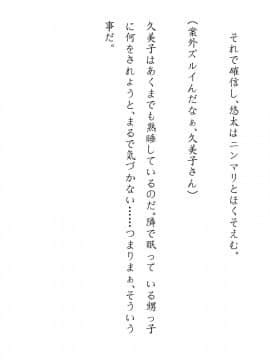 それで確信し、悠太はニンマリとほくそえむ。
(案外ズルイんだなぁ、久美子さん)
久美子はあくまでも熟睡しているのだ。隣で眠って いる甥っ子
に何をされようと、まるで気づかない……つまりまぁ、そういう
事だ。